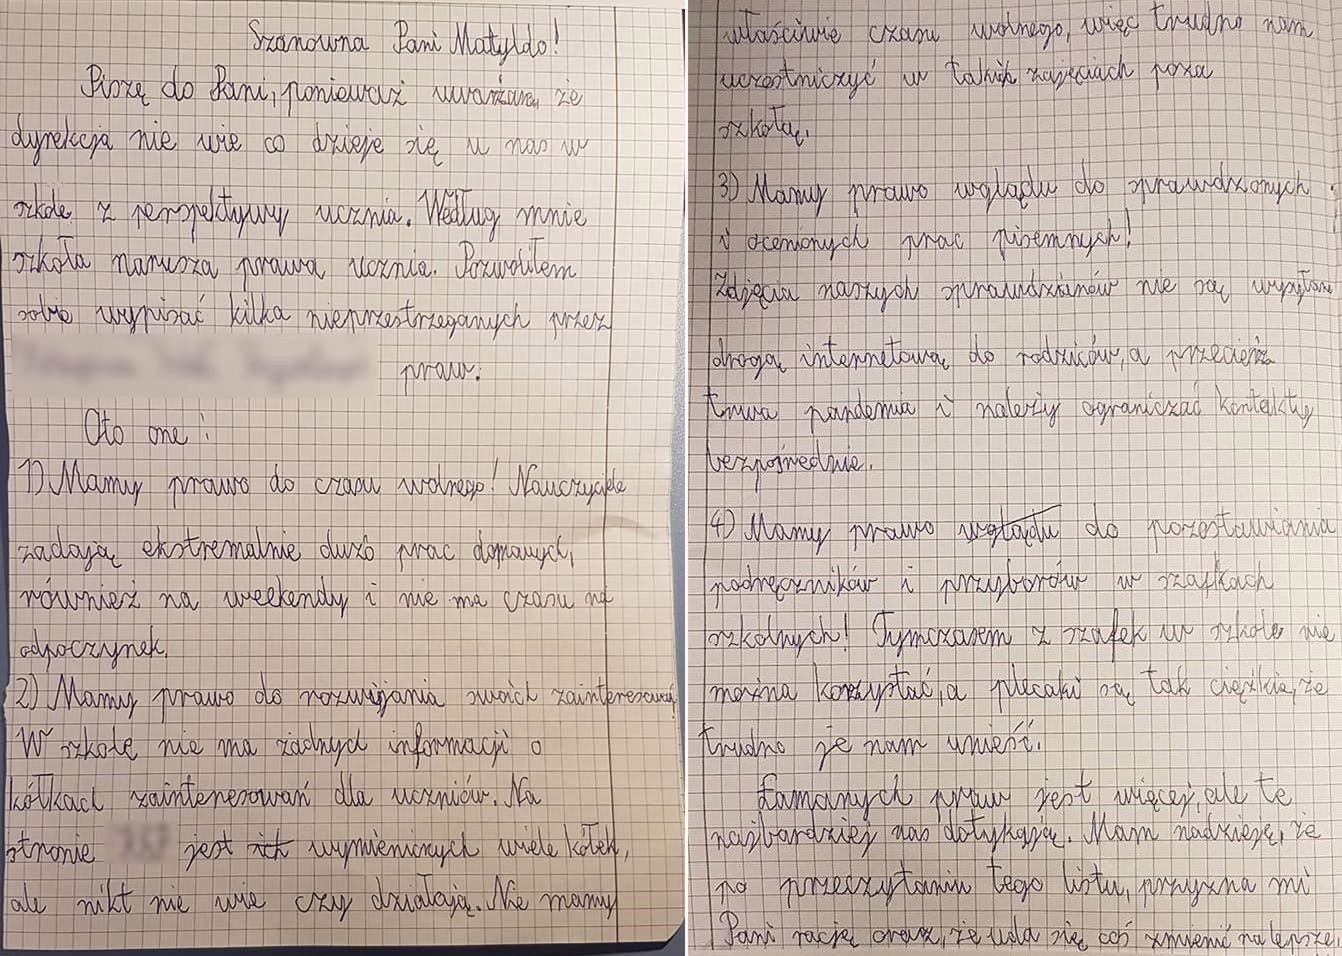 Szanowna Pani Matyldo!
Piszę do Pani, ponieważ uważam, że
dyrekcja nie wie co dzieje się u nas w
szkole z perspektywy ucznia. Według mnie
szkoła narusza prawa ucznia. Pozwoliłem
sobie wypisać kilka nieprzestrzeganych przez
praw.
Oto one:
1) Mamy prawo do czasu wolnego! Nauczyciele
zadają ekstremalnie dużo prac domowych,
również na weekendy i nie ma czasu na
odpoczynek.
2) Mamy prawo do rozwijania swoich zainteresowań!
W szkole nie ma żadnych informacji o
kółkach zainteresowań dla uczniów. Na
stronie jest ich wymienionych wiele kółek,
ale nikt nie wie czy działają. Nie mamy
właściwie czasu wolnego, więc trudno nam
uczestniczyć w takich zajęciach poza
szkołą.
3) Mamy prawo wglądu do sprawdzonych
i ocenionych prac pisemnych!
Zdjęcia naszych sprawdzianów nie są wysyłane
drogą internetową do rodziców, a przecież
trwa pandemia i należy ograniczać kontakty
bezpośrednie.
4) Mamy prawo wglądu do pozostawiania
podręczników i przyborów w szafkach
szkolnych! Tymczasem z szafek w szkole nie
można korzystać, a plecaki są tak ciężkie, że
trudno je nam unieść.
Łamanych praw jest więcej, ale te
najbardziej nas dotykają. Mam nadzieję, że
po przeczytaniu tego listu, przyzna mi
Pani rację oraz, że uda się coś zmienić na lepsze.